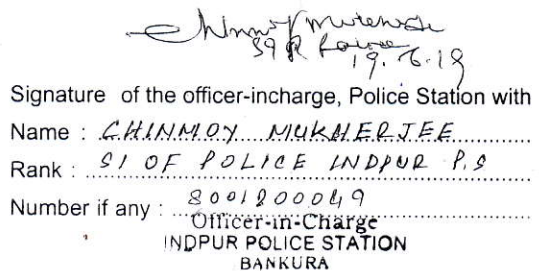 Chinmoy Mukherjee
SI of Police
19.6.19
Signature of the officer-incharge, Police Station with
Name : CHINMOY MUKHERJEE
Rank : SI OF POLICE INDPUR P.S
Number if any : 8001200049
Officer-in-Charge
INDPUR POLICE STATION
BANKURA